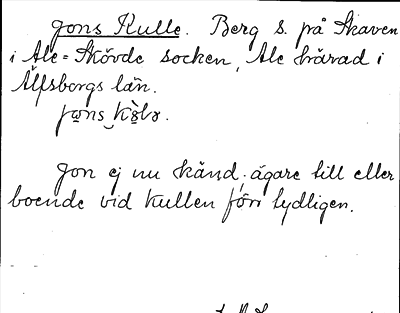 Jons Kulle. Berg S. på Skaven
i Ale-Skövde socken, Ale härad i
Älfsborgs län.
Jon ej nu känd; ägare till eller
boende vid kullen förr tydligen.